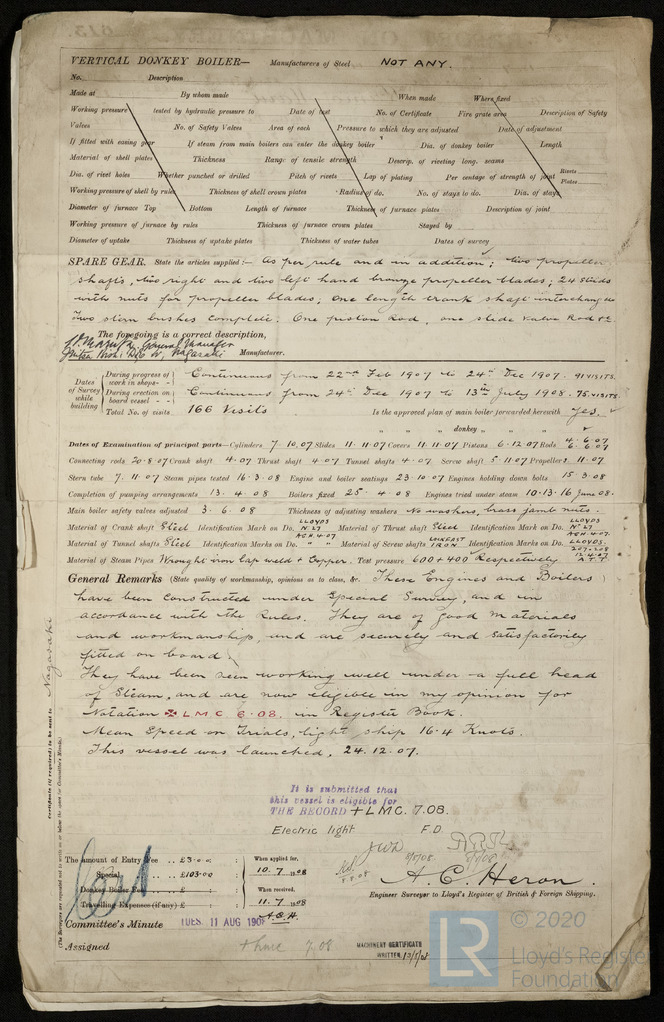 VERTICAL DONKEY BOILER— Manufacturers of Steel NOT ANY.
No. Description
Made at By whom made When made Where fixed
Working pressure tested by hydraulic pressure to Date of test No. of Certificate Fire grate area Description of Safety
Valves No. of Safety Valves Area of each Pressure to which they are adjusted Date of adjustment
If fitted with easing gear If steam from main boilers can enter the donkey boiler Dia. of donkey boiler Length
Material of shell plates Thickness Range of tensile strength Descrip. of riveting long. seams
Dia. of rivet holes Whether punched or drilled Pitch of rivets Lap of plating Per centage of strength of joint Rivets Plates
Working pressure of shell by rules Thickness of shell crown plates Radius of do. No. of stays to do. Dia. of stays
Diameter of furnace Top Bottom Length of furnace Thickness of furnace plates Description of joint
Working pressure of furnace by rules Thickness of furnace crown plates Stayed by
Diameter of uptake Thickness of uptake plates Thickness of water tubes Dates of survey
SPARE GEAR. State the articles supplied:— As per rule and in addition; two propeller
shafts, two right and two left hand bronze propeller blades; 24 studs
with nuts for propeller blades; One length crank shaft interchange
Two stern bushes complete. One piston rod, one slide valve rod &c.
The foregoing is a correct description,
General Manager
Nagasaki Manufacturer.
Dates of Survey while building
During progress of work in shops- - Continuous from 22nd Feb 1907 to 24th Dec 1907. 91 VISITS.
During erection on board vessel - - Continuous from 24th Dec 1907 to 13th July 1908. 75 VISITS.
Total No. of visits 166 Visits Is the approved plan of main boiler forwarded herewith Yes.
" " " donkey " " "
Dates of Examination of principal parts—Cylinders 7.10.07 Slides 11.11.07 Covers 11.11.07 Pistons 6.12.07 Rods 4.6.07 6.6.07
Connecting rods 20.8.07 Crank shaft 4.07 Thrust shaft 4.07 Tunnel shafts 4.07 Screw shaft 5.11.07 Propellers 11.07
Stern tube 7.11.07 Steam pipes tested 16.3.08 Engine and boiler seatings 23.10.07 Engines holding down bolts 15.3.08
Completion of pumping arrangements 13.4.08 Boilers fixed 25.4.08 Engines tried under steam 10.13.16 June 08.
Main boiler safety valves adjusted 3.6.08 Thickness of adjusting washers No washers, brass jamb nuts.
Material of Crank shaft Steel Identification Mark on Do. LLOYDS No 27 ACH 4.07. Material of Thrust shaft Steel Identification Mark on Do. LLOYDS No 27 ACH 4.07.
Material of Tunnel shafts Steel Identification Marks on Do. " " Material of Screw shafts IRON Identification Marks on Do. LLOYDS. 207-208
Material of Steam Pipes Wrought iron lap weld & Copper. Test pressure 600 & 400 Respectively
General Remarks (State quality of workmanship, opinions as to class, &c. These Engines and Boilers
have been constructed under Special Survey, and in
accordance with the Rules. They are of good materials
and workmanship, and are securely and satisfactorily
fitted on board.
They have been seen working well under a full head
of Steam, and are now eligible in my opinion for
Notation ✠ LMC 6.08. in Register Book.
Mean Speed on Trials, light ship 16.4 Knots.
This vessel was launched, 24.12.07.
Certificate (if required) to be sent to Nagasaki
(The Surveyors are requested not to write on or below the space for Committee's Minute.)
It is submitted that
this vessel is eligible for
THE RECORD + LMC. 7.08.
Electric light F.D.
The amount of Entry Fee .. £3.0.0: When applied for,
Special .. £103.00 : 10.7.1908
Donkey Boiler Fee .. £ : When received,
Travelling Expenses (if any) £ : 11.7.1908
A.C.H.
A. C. Heron.
Engineer Surveyor to Lloyd's Register of British & Foreign Shipping.
Committee's Minute TUES. 11 AUG 1908
Assigned + LMC 7.08
MACHINERY CERTIFICATE
WRITTEN
LR
© 2020
Lloyd's Register
Foundation